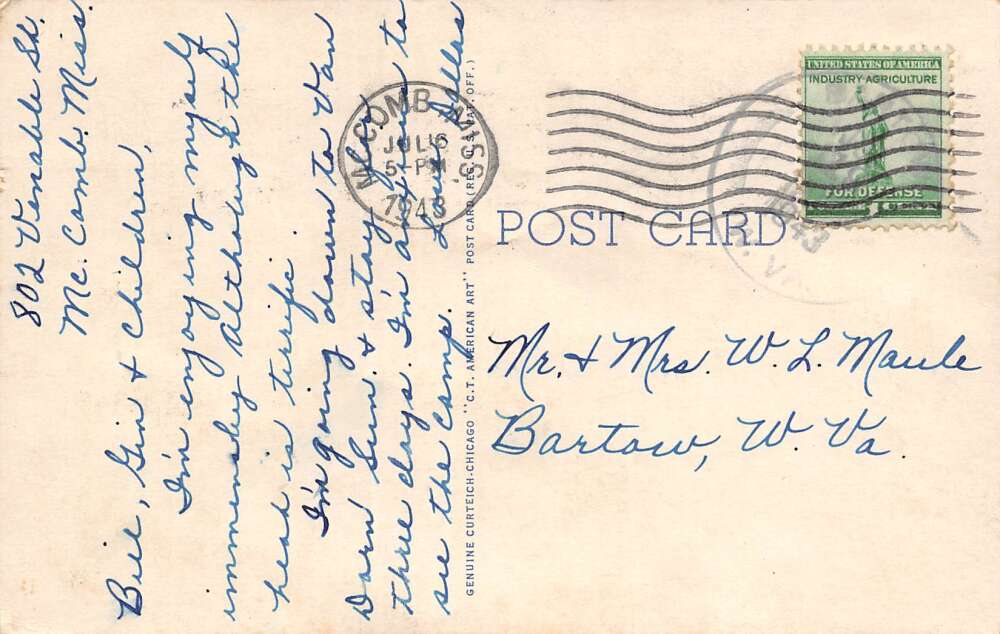 802 Venable St.
Mc. Comb. Miss.
Bill, Gin & children,
I'm enjoying myself
immensley although the
head is terrific
I'm going down to Van
Dorn Sun. & stay
three days. I'm anxious to
see the camp.
Love,
GENUINE CURTEICH-CHICAGO "C.T. AMERICAN ART" POST CARD (REG. U.S. PAT. OFF.)
McCOMB MISS.
JUL 6
5-PM
1943
UNITED STATES OF AMERICA
INDUSTRY AGRICULTURE
FOR DEFENSE
1 CENT
1943
POST CARD
Mr. & Mrs. W. L. Maule
Bartow, W. Va.